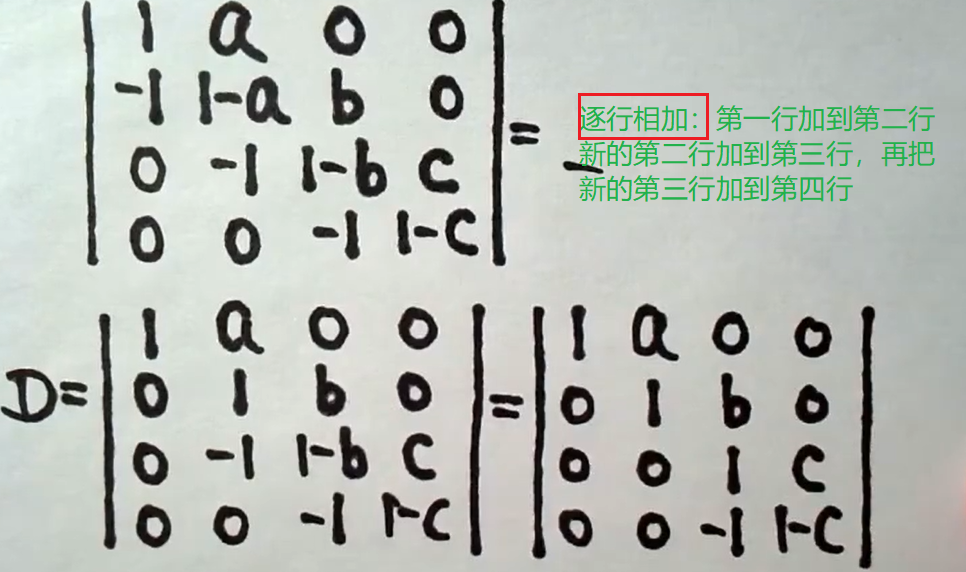 1 a 0 0
-1 1-a b 0
0 -1 1-b c
0 0 -1 1-c
= _
逐行相加：第一行加到第二行
新的第二行加到第三行，再把
新的第三行加到第四行
D= 1 a 0 0 = 1 a 0 0
0 1 b 0 0 1 b 0
0 -1 1-b c 0 0 1 c
0 0 -1 1-c 0 0 -1 1-c